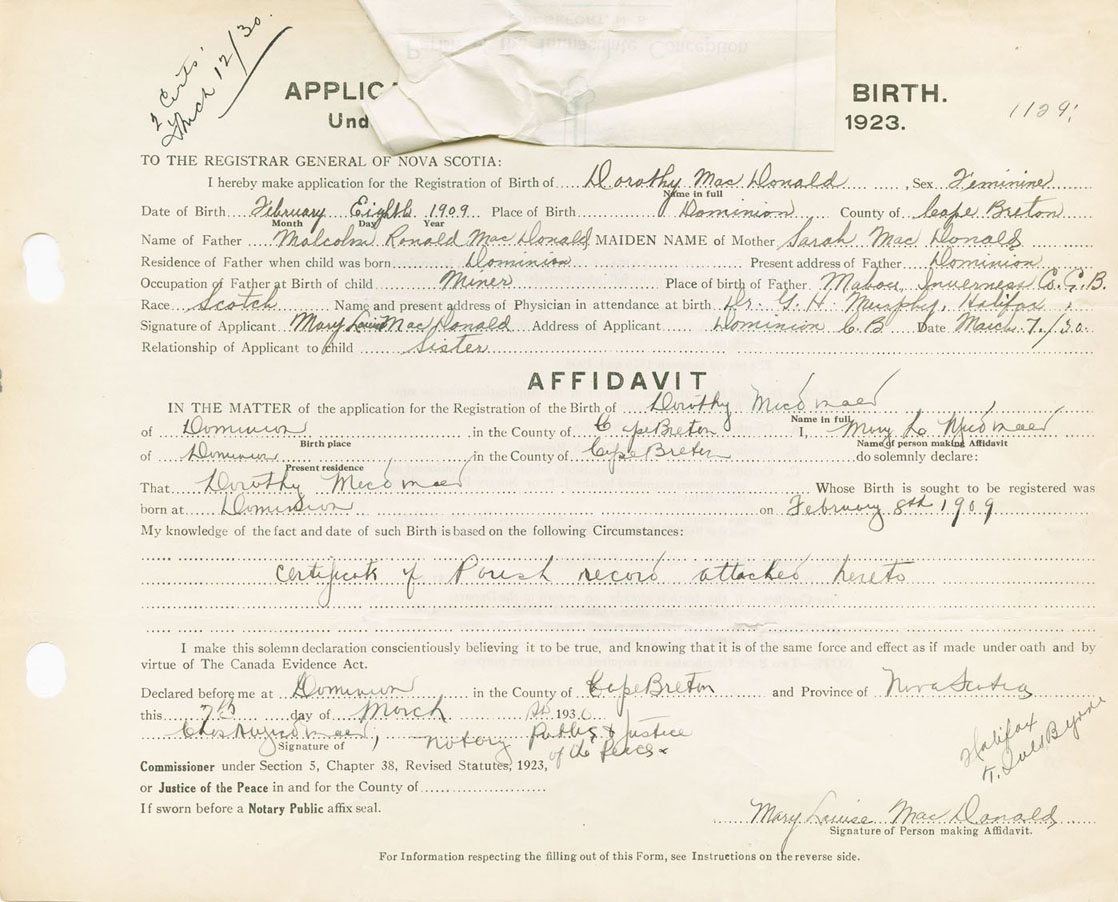 2 Certs'
March 12/30.
APPLIC BIRTH.
Und 1923.
1129
TO THE REGISTRAR GENERAL OF NOVA SCOTIA:
I hereby make application for the Registration of Birth of Dorothy Mac Donald, Sex Feminine
Name in full
Date of Birth February Eighth 1909 Place of Birth Dominion County of Cape Breton
Month Day Year
Name of Father Malcolm Ronald MacDonald MAIDEN NAME of Mother Sarah Mac Donald
Residence of Father when child was born Dominion Present address of Father Dominion
Occupation of Father at Birth of child Miner Place of birth of Father Mabou, Inverness Co. C.B.
Race Scotch Name and present address of Physician in attendance at birth Dr. G. H. Murphy, Halifax
Signature of Applicant Mary Louise MacDonald Address of Applicant Dominion C.B Date March 7./30.
Relationship of Applicant to child Sister
AFFIDAVIT
IN THE MATTER of the application for the Registration of the Birth of Dorothy
Name in full
of Dominion in the County of Cape Breton I, Mary L.
Birth place Name of person making Affidavit
of Dominion in the County of Cape Breton do solemnly declare:
Present residence
That Dorothy Whose Birth is sought to be registered was
born at Dominion on February 8th 1909
My knowledge of the fact and date of such Birth is based on the following Circumstances:
Certificate of Parish record attached hereto
I make this solemn declaration conscientiously believing it to be true, and knowing that it is of the same force and effect as if made under oath and by
virtue of The Canada Evidence Act.
Declared before me at Dominion in the County of Cape Breton and Province of Nova Scotia
this 7th day of March 1930
notary Public & Justice
Signature of of the Peace
Commissioner under Section 5, Chapter 38, Revised Statutes, 1923,
or Justice of the Peace in and for the County of
If sworn before a Notary Public affix seal.
Halifax
Mary Louise Mac Donald
Signature of Person making Affidavit.
For Information respecting the filling out of this Form, see Instructions on the reverse side.